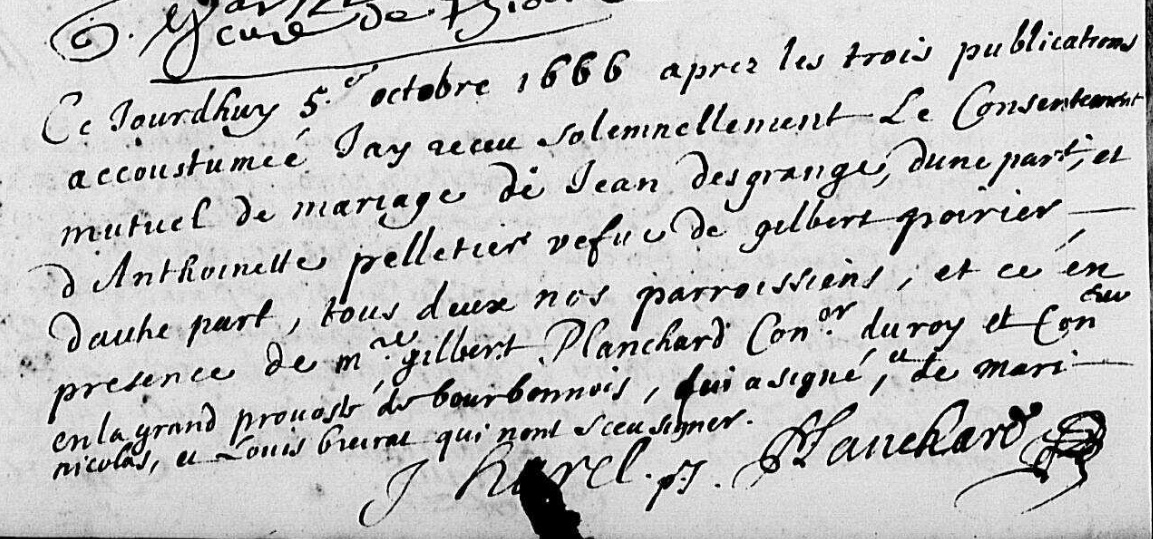 curé de
Ce Jourdhuy 5.e octobre 1666 aprez les trois publications
accoustumeé Jay receu solemnellement Le Consentement
mutuel de mariage de Jean desgrange, dune part, et
d Anthoinette pelletier vefue de gilbert poirier
dautre part, tous deux nos parroissiens, et ce en
presence de m.re gilbert Planchard Con.or du roy et Con
en la grand prouosté de bourbonnois, qui a signé, et de mari
nicolas, et Louis qui nont sceu signer.
J harel. p.J. Planchard